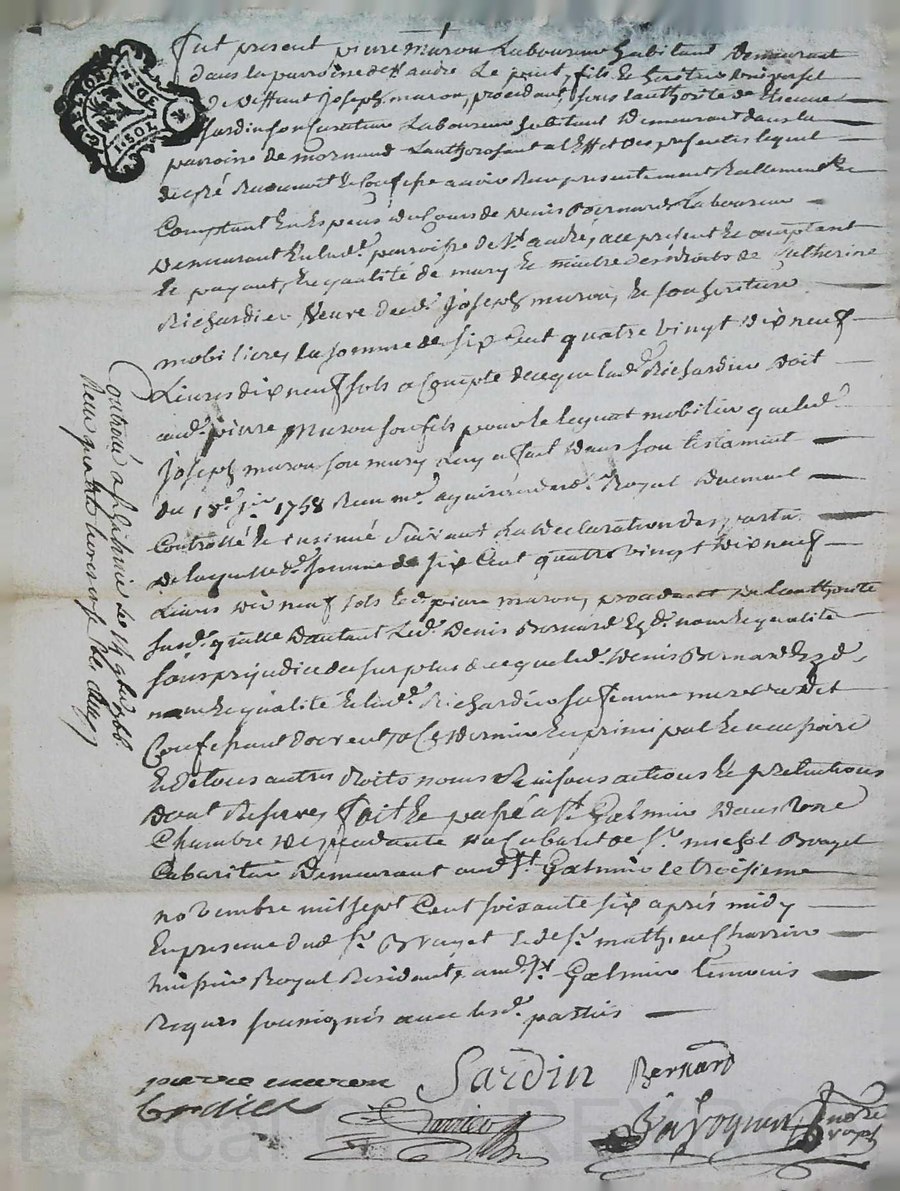 fut present pierre muron Laboureur habitant demeurant
dans la parroisse de St andré Le puit, fils et heritier
de deffunt Joseph muron, procedant sous lauthorité de Etienne
Jardin son curateur Laboureur habitant demeurant dans la
parroisse de mornand Lauthorisant a l Effet des presentes lequel
de gré Reconnoit et Confesse avoir Reçu presentement Réellement et
Comptant En Especes du Cours de denis Bernard Laboureur
demeurant En lad. parroisse de St andré, ace present et aceptant
Et payant, En qualité de mary Et maitre des droits de Catherine
Richardier Veuve dud. Joseph muron, Et son heritiere
mobiliere, La somme de six Cent quatre vingt dix neuf
Livres dix neuf sols a Compte de ce que lad. Richardier doit
aud. pierre Muron son fils pour le leguat mobilier que led.
Joseph muron son mary luy a fait dans son testament
du 18e 1758 Reçu me Royal duement
Controllé Et insinué Suivant La declaration des parties
de laquelle d. somme de six Cent quatre vingt dix neuf
Livres dix neuf sols led. pierre muron, procedant de Lauthorité
susd. quitte dautant Led. denis Bernard Esd. nom Et qualité
sans prejudice du surplus de ce que led. denis Bernard Esd.
nom Et qualité Et lad. Richardier sa femme mere
Confessant devoir a Ce dernier En principal Et accessoire
Et de tous autres droits noms Raisons actions Et pretentions
dont Reserves fait Et passé a St Galmier dans Une
Chambre dependante du Cabaret de Sr. michel Bruyet
Cabaretier demeurant aud. St Galmier le troisieme
novembre mil sept Cent soixante six après midy
En presence dud Sr. Bruyet Et de Sr. mathieu Charrin
huissier Royal Residants, aud. St Galmier temoins
Requis soussignés avec lesd. parties
pierre muron Sardin Bernard
notre
royal
Controllé a St Galmier Le 14 9bre 1766
Reçu quatre livres